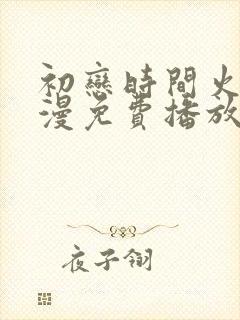 初戀時間火
漫免費播放
夜子翎